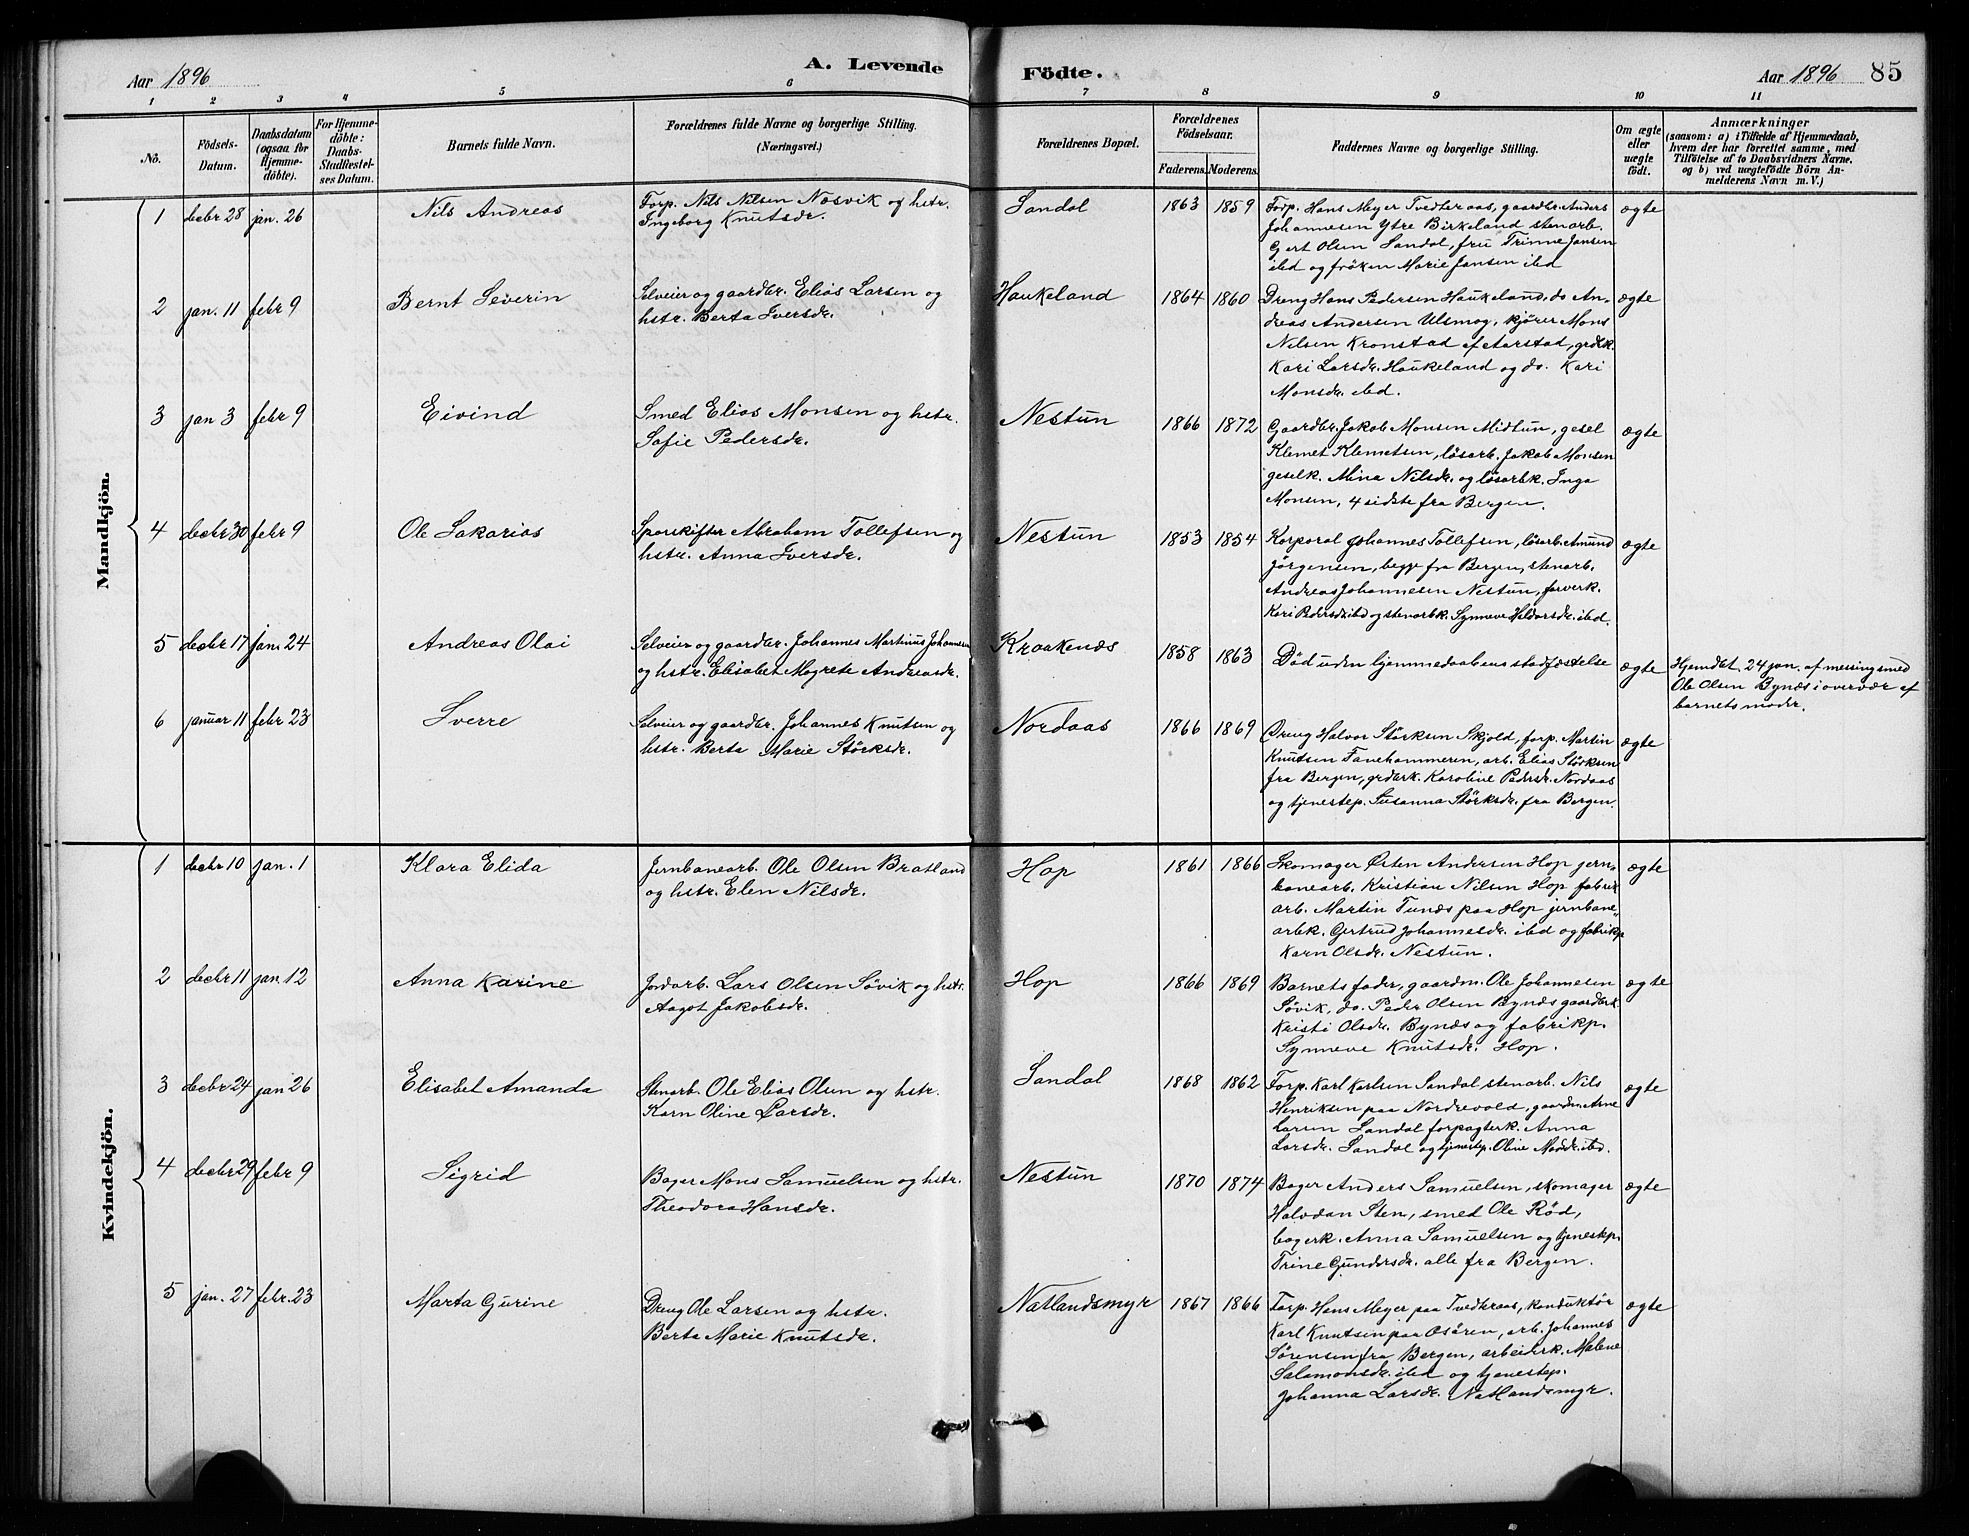 Aar 1896
A. Levende Födte.
Aar 1896
85
1 2 3 4 5 6 7 8 9 10 11
No.
Födsels-Datum.
Daabsdatum (ogsaa for Hjemme-döbte).
For Hjemme-döbte: Daabs-Stadfæstel-ses Datum.
Barnets fulde Navn.
Forældrenes fulde Navne og borgerlige Stilling.
(Næringsvei.)
Forældrenes Bopæl.
Forældrenes Födselsaar.
Faderens. Moderens.
Faddernes Navne og borgerlige Stilling.
Om ægte eller uægte födt.
Anmærkninger
(saasom: a) i Tilfælde af Hjemmedaab,
hvem der har forrettet samme, med
Tilföielse af to Daabsvidners Navne,
og b) ved uægtefödte Börn An-
melderens Navn m. V.)
Mandkjön.
1 decbr 28 jan. 26 Nils Andreas
Forp. Nils Nilsen Nøsvik og hstr.
Ingeborg Knutsdr.
Sandal 1863 1859
Forp. Hans Meyer Tvedteraas, gaardbr. Anders
Johannesen Ytre Birkeland stenarb.
Gert Olsen Sandal, fru Trinne Jansen
ibd og frøken Marie Jansen ibd
ægte
2 jan. 11 febr 9 Bernt Severin
Selveier og gaardbr. Elias Larsen og
hstr. Berta Iversdr.
Haukeland 1864 1860
Dreng Hans Pedersen Haukeland, do An-
dreas Andersen Ulsmog, kjører Mons
Nilsen Kronstad af Aarstad, grdbk.
Kari Larsdr. Haukeland og do. Kari
Monsdr. ibd.
ægte
3 jan 3 febr 9 Eivind
Smed Elias Monsen og hstr.
Sofie Pedersdr.
Nestun 1866 1872
Gaardbr. Jakob Monsen Midtun, gesel
Klemet Klemetsen, løsarb. Jakob Monsen
geselk. Mina Nilsdr. og løsarbk. Inga
Monsen, 4 sidste fra Bergen.
ægte
4 decbr 30 febr 9 Ole Sakarias
Sporskifter Abraham Tollefsen og
hstr. Anna Iversdr.
Nestun 1853 1854
Korporal Johannes Tollefsen, løsarb. Amund
Jörgensen, begge fra Bergen, stenarb.
Andreas Johannesen Nestun, farverk.
Kari Pedersdr. ibd og stenarbk. Synneve Haldorsdr. ibd.
ægte
5 decbr 17 jan. 24 Andreas Olai
Selveier og gaardbr. Johannes Martinus Johannesen
og hstr. Elisabet Magrete Andreasdr.
Kraakenæs 1858 1863
Død uden hjemmedaabens stadfæstelse
ægte
Hjemdøbt. 24 jan. af messingsmed
Ole Olsen Bynæs i overvær af
barnets moder.
6 januar 11 febr 23 Sverre
Selveier og gaardbr. Johannes Knutsen og
hstr. Berta Marie Störksdr.
Nordaas 1866 1869
Dreng Halvor Störksen Skjold, forp. Martin
Knutsen Fanehammeren, arb. Elias Störksen
fra Bergen, grdbrk. Karoline Pedersdr. Nordaas
og tjenestep. Susanna Störksdr. fra Bergen.
ægte
Kvindekjön.
1 decbr 10 jan. 1 Klara Elida
Jernbanearb. Ole Olsen Bratland
og hstr. Elen Nilsdr.
Hop 1861 1866
Skomager Østen Andersen Hop jern-
banearb. Kristian Nilsen Hop fabrik
arb. Martin Tunæs paa Hop jernbane"
arbk. Gertrud Johannesdr. ibd og fabrikp
Karn Olsdr. Nestun.
ægte
2 decbr 11 jan. 12 Anna Karine
Jordarb. Lars Olsen Søvik og hstr.
Aagot Jakobsdr.
Hop 1866 1869
Barnets fader, gaardm. Ole Johannesen
Søvik, do. Peder Olsen Bynæs gaardbrk
Kristi Olsdr. Bynæs og fabrikp.
Synneve Knutsdr. Hop.
ægte
3 decbr 24 jan 26 Elisabet Amanda
Stenarb. Ole Elias Olsen og hstr.
Karn Oline Larsdr.
Sandal 1868 1862
Forp. Karl Karlsen Sandal stenarb. Nils
Henriksen paa Nordrevold, gaardm. Arne
Larsen Sandal forpagterk. Anna
Larsdr. Sandal og tjenstep. Oline Madsdr. ibd.
ægte
4 decbr 29 febr 9 Sigrid
Bager Mons Samuelsen og hstr.
Theodora Hansdr.
Nestun 1870 1874
Bager Anders Samuelsen, skomager
Halvdan Sten, smed Ole Rød,
bagerk. Anna Samuelsen og tjenestep.
Trine Gundersdr. alle fra Bergen.
ægte
5 jan. 27 febr. 23 Marta Gurine
Dreng Ole Larsen og hstr.
Berta Marie Knutsdr.
Natlandsmyr 1867 1866
Forp. Hans Meyer paa Tvedteraas, konduktör
Karl Knutsen paa Osören, arb. Johannes
Sørensen fra Bergen, arbeiderk. Malene
Salamonsdr. ibd og tjenestep.
Johanna Larsdr. Natlandsmyr.
ægte